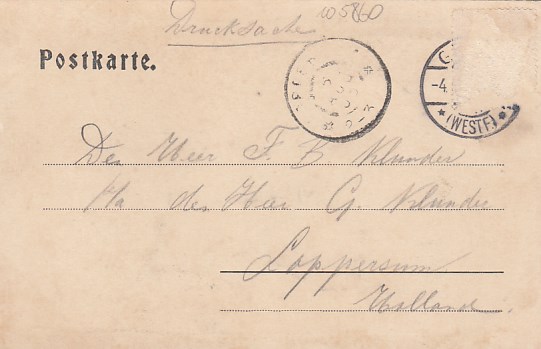 105860
Drucksache
Postkarte.
G
-4.
*(WESTF)*
Den Heer F. B Klunder
p/a den Heer G. Klunder
Loppersum
Holland.